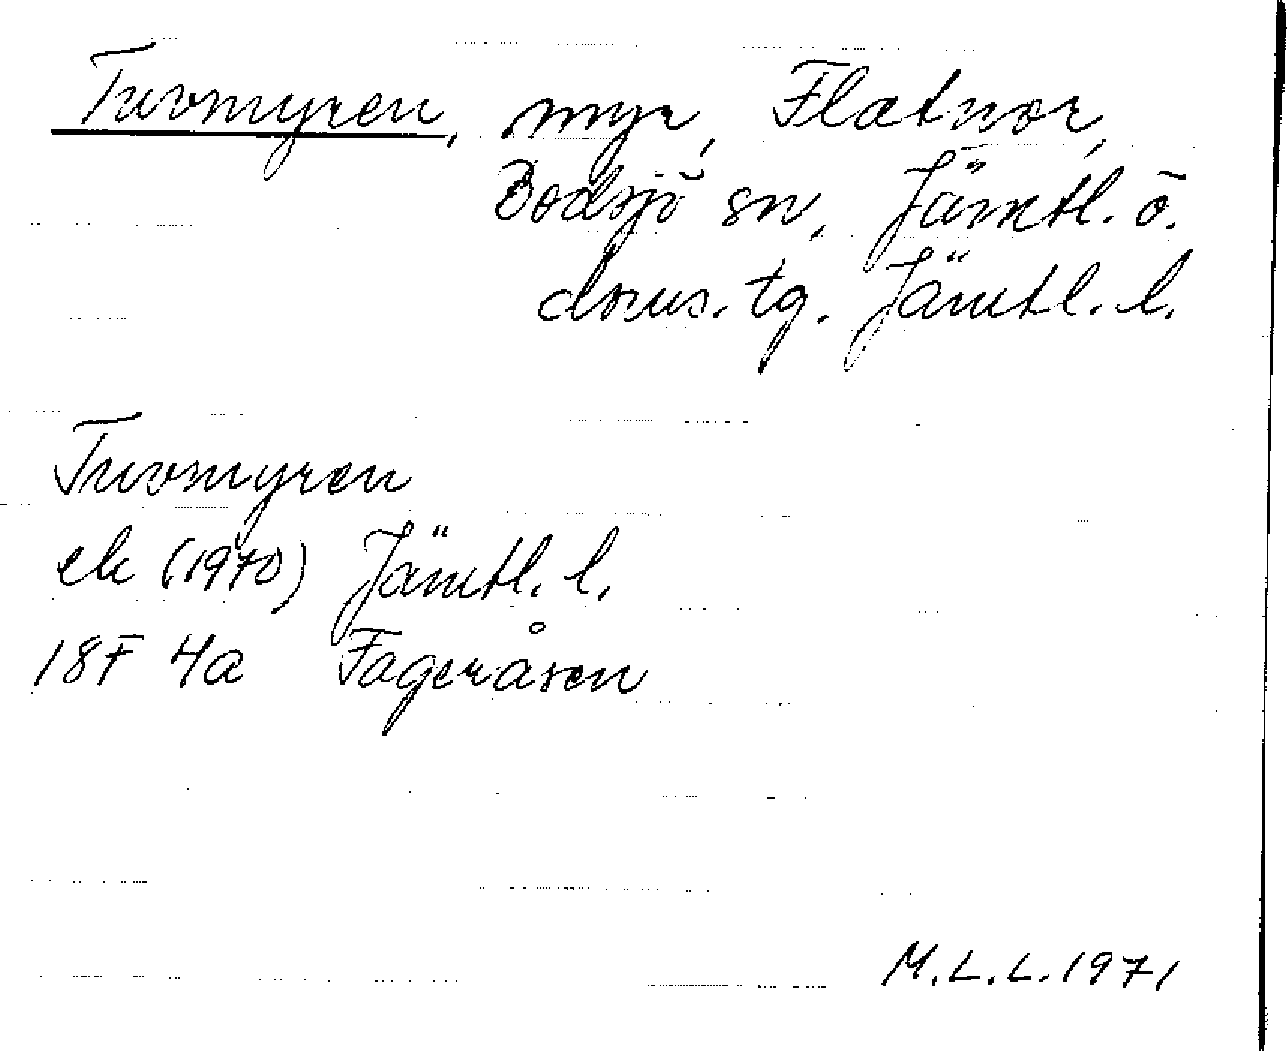 Tuvomyren, myr, Flatnor,
Bodsjö sn, Jämtl. ö.
doms. tg. Jämtl. l.
Tuvomyren
ek (1970) Jämtl. l.
18F 4a Fageråsen
M.L.L. 1971